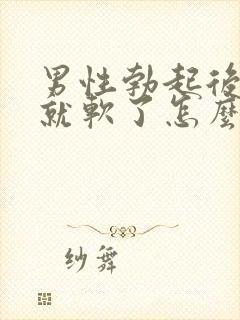 男性勃起後
就軟了怎麼
纱舞